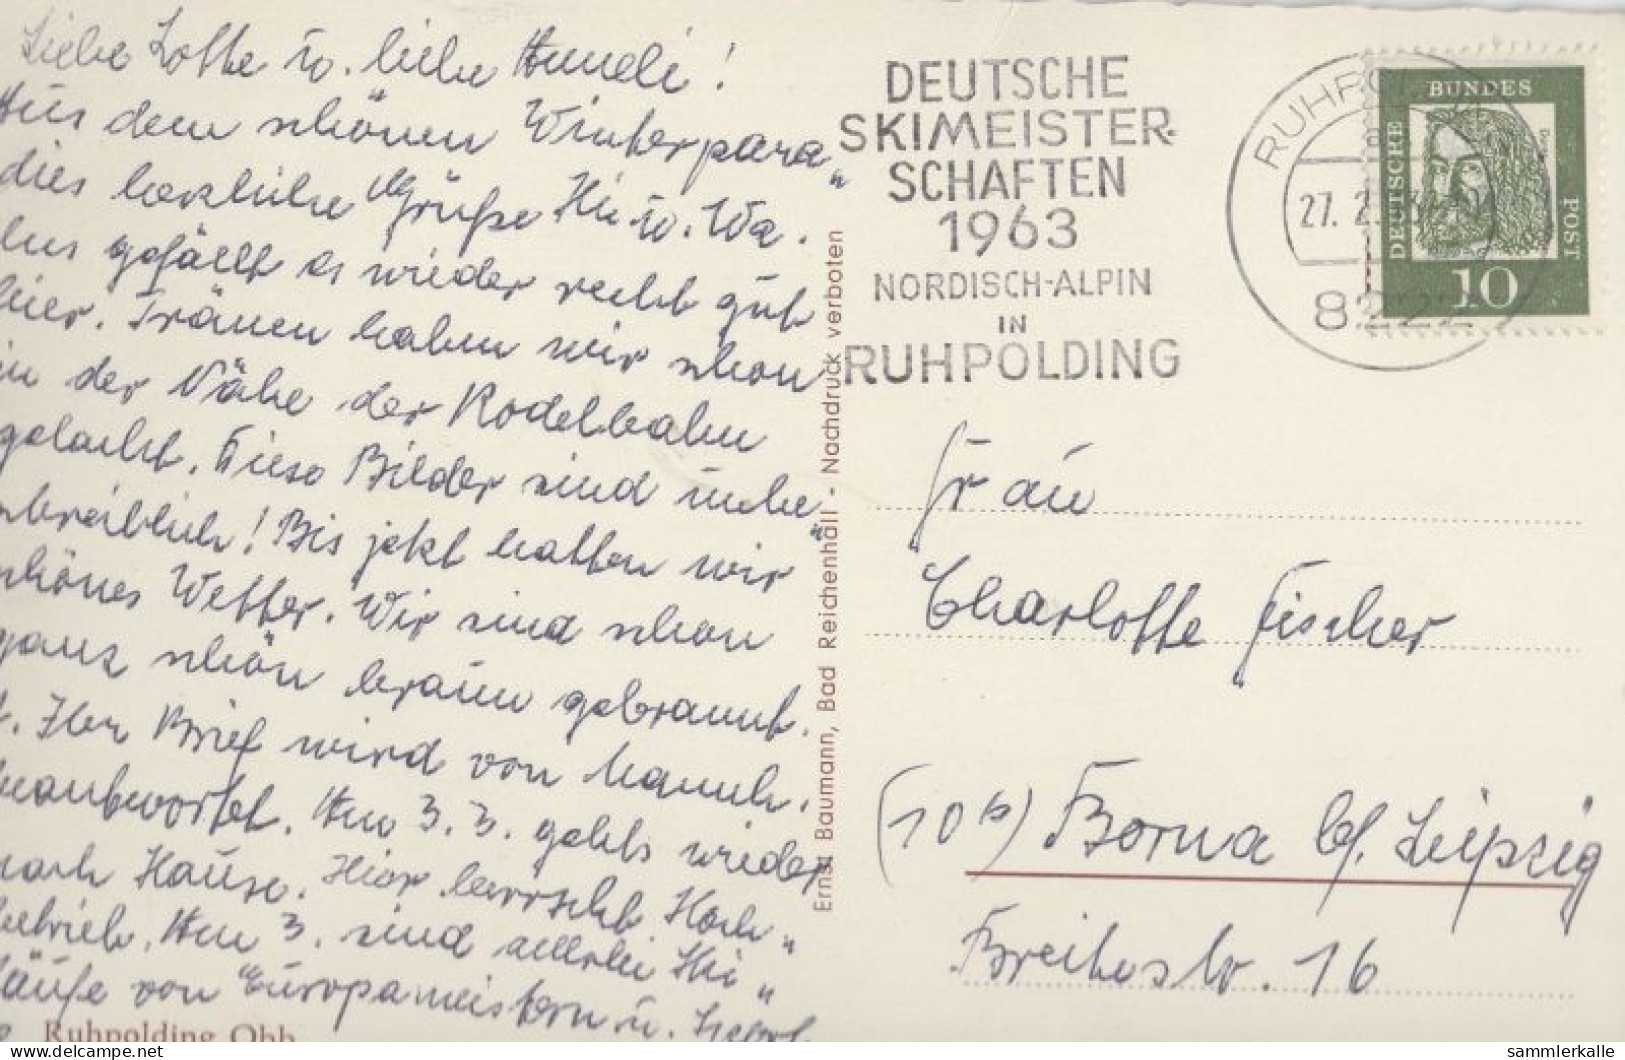 Liebe Lotte u. liebe Hundi!
Aus dem schönen Winterpara„
dies herzliche Grüße Hi u. Wa.
gefällt es wieder recht gut
hier. Tränen haben wir schon
in der Nähe der Rodelbahn
gelacht. Diese Bilder sind unbe„
schreiblich! Bis jetzt hatten wir
schönes Wetter. Wir sind schon
ganz schön braun gebrannt.
Ihr Brief wird von
beantwortet. Am 3.3. gehts wieder
nach Hause. Hier herrscht Hoch„
betrieb. Am 3. sind allerlei
von Europameistern u.
Ruhpolding Obb.
Ernst Baumann, Bad Reichenhall - Nachdruck verboten
DEUTSCHE
SKIMEISTER-
SCHAFTEN
1963
NORDISCH-ALPIN
IN
RUHPOLDING
27. 2.
DEUTSCHE
BUNDES
POST
10
Frau
Charlotte Fischer
(10b) Borna b/. Leipzig
Breitestr. 16
delcampe.net
sammlerkalle